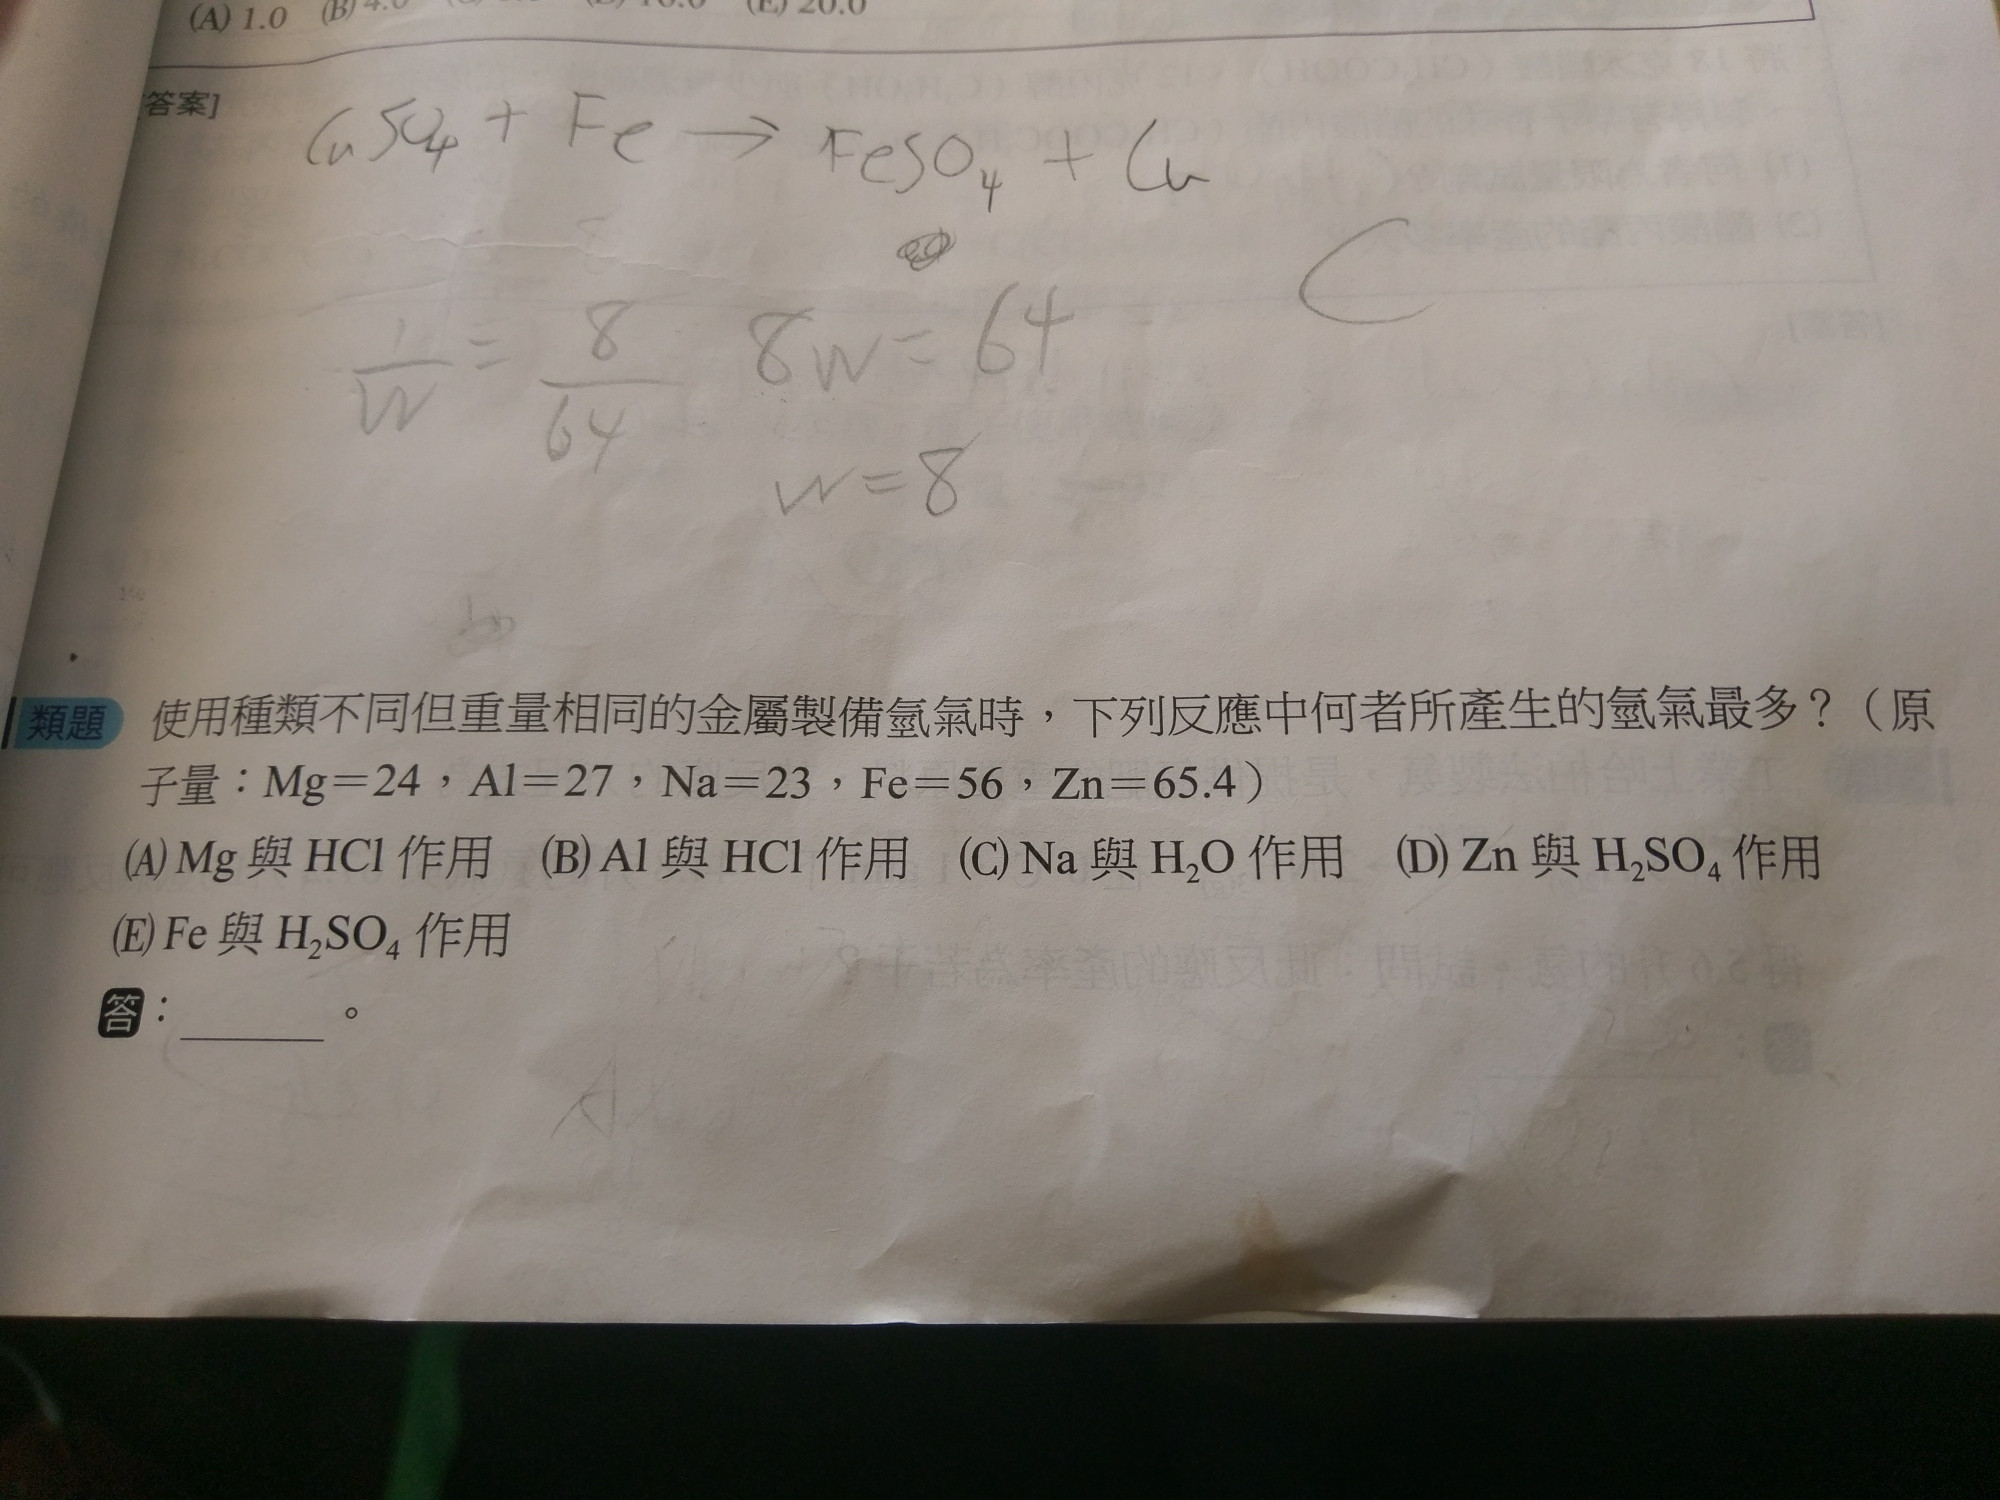 (A) 1.0 (B) 4.0 (E) 20.0
[答案]
CuSO₄ + Fe → FeSO₄ + Cu
C
1/W = 8/64 8W = 64
W = 8
類題 使用種類不同但重量相同的金屬製備氫氣時，下列反應中何者所產生的氫氣最多？（原
子量：Mg＝24，Al＝27，Na＝23，Fe＝56，Zn＝65.4）
(A) Mg 與 HCl 作用 (B) Al 與 HCl 作用 (C) Na 與 H₂O 作用 (D) Zn 與 H₂SO₄ 作用
(E) Fe 與 H₂SO₄ 作用
答：______。